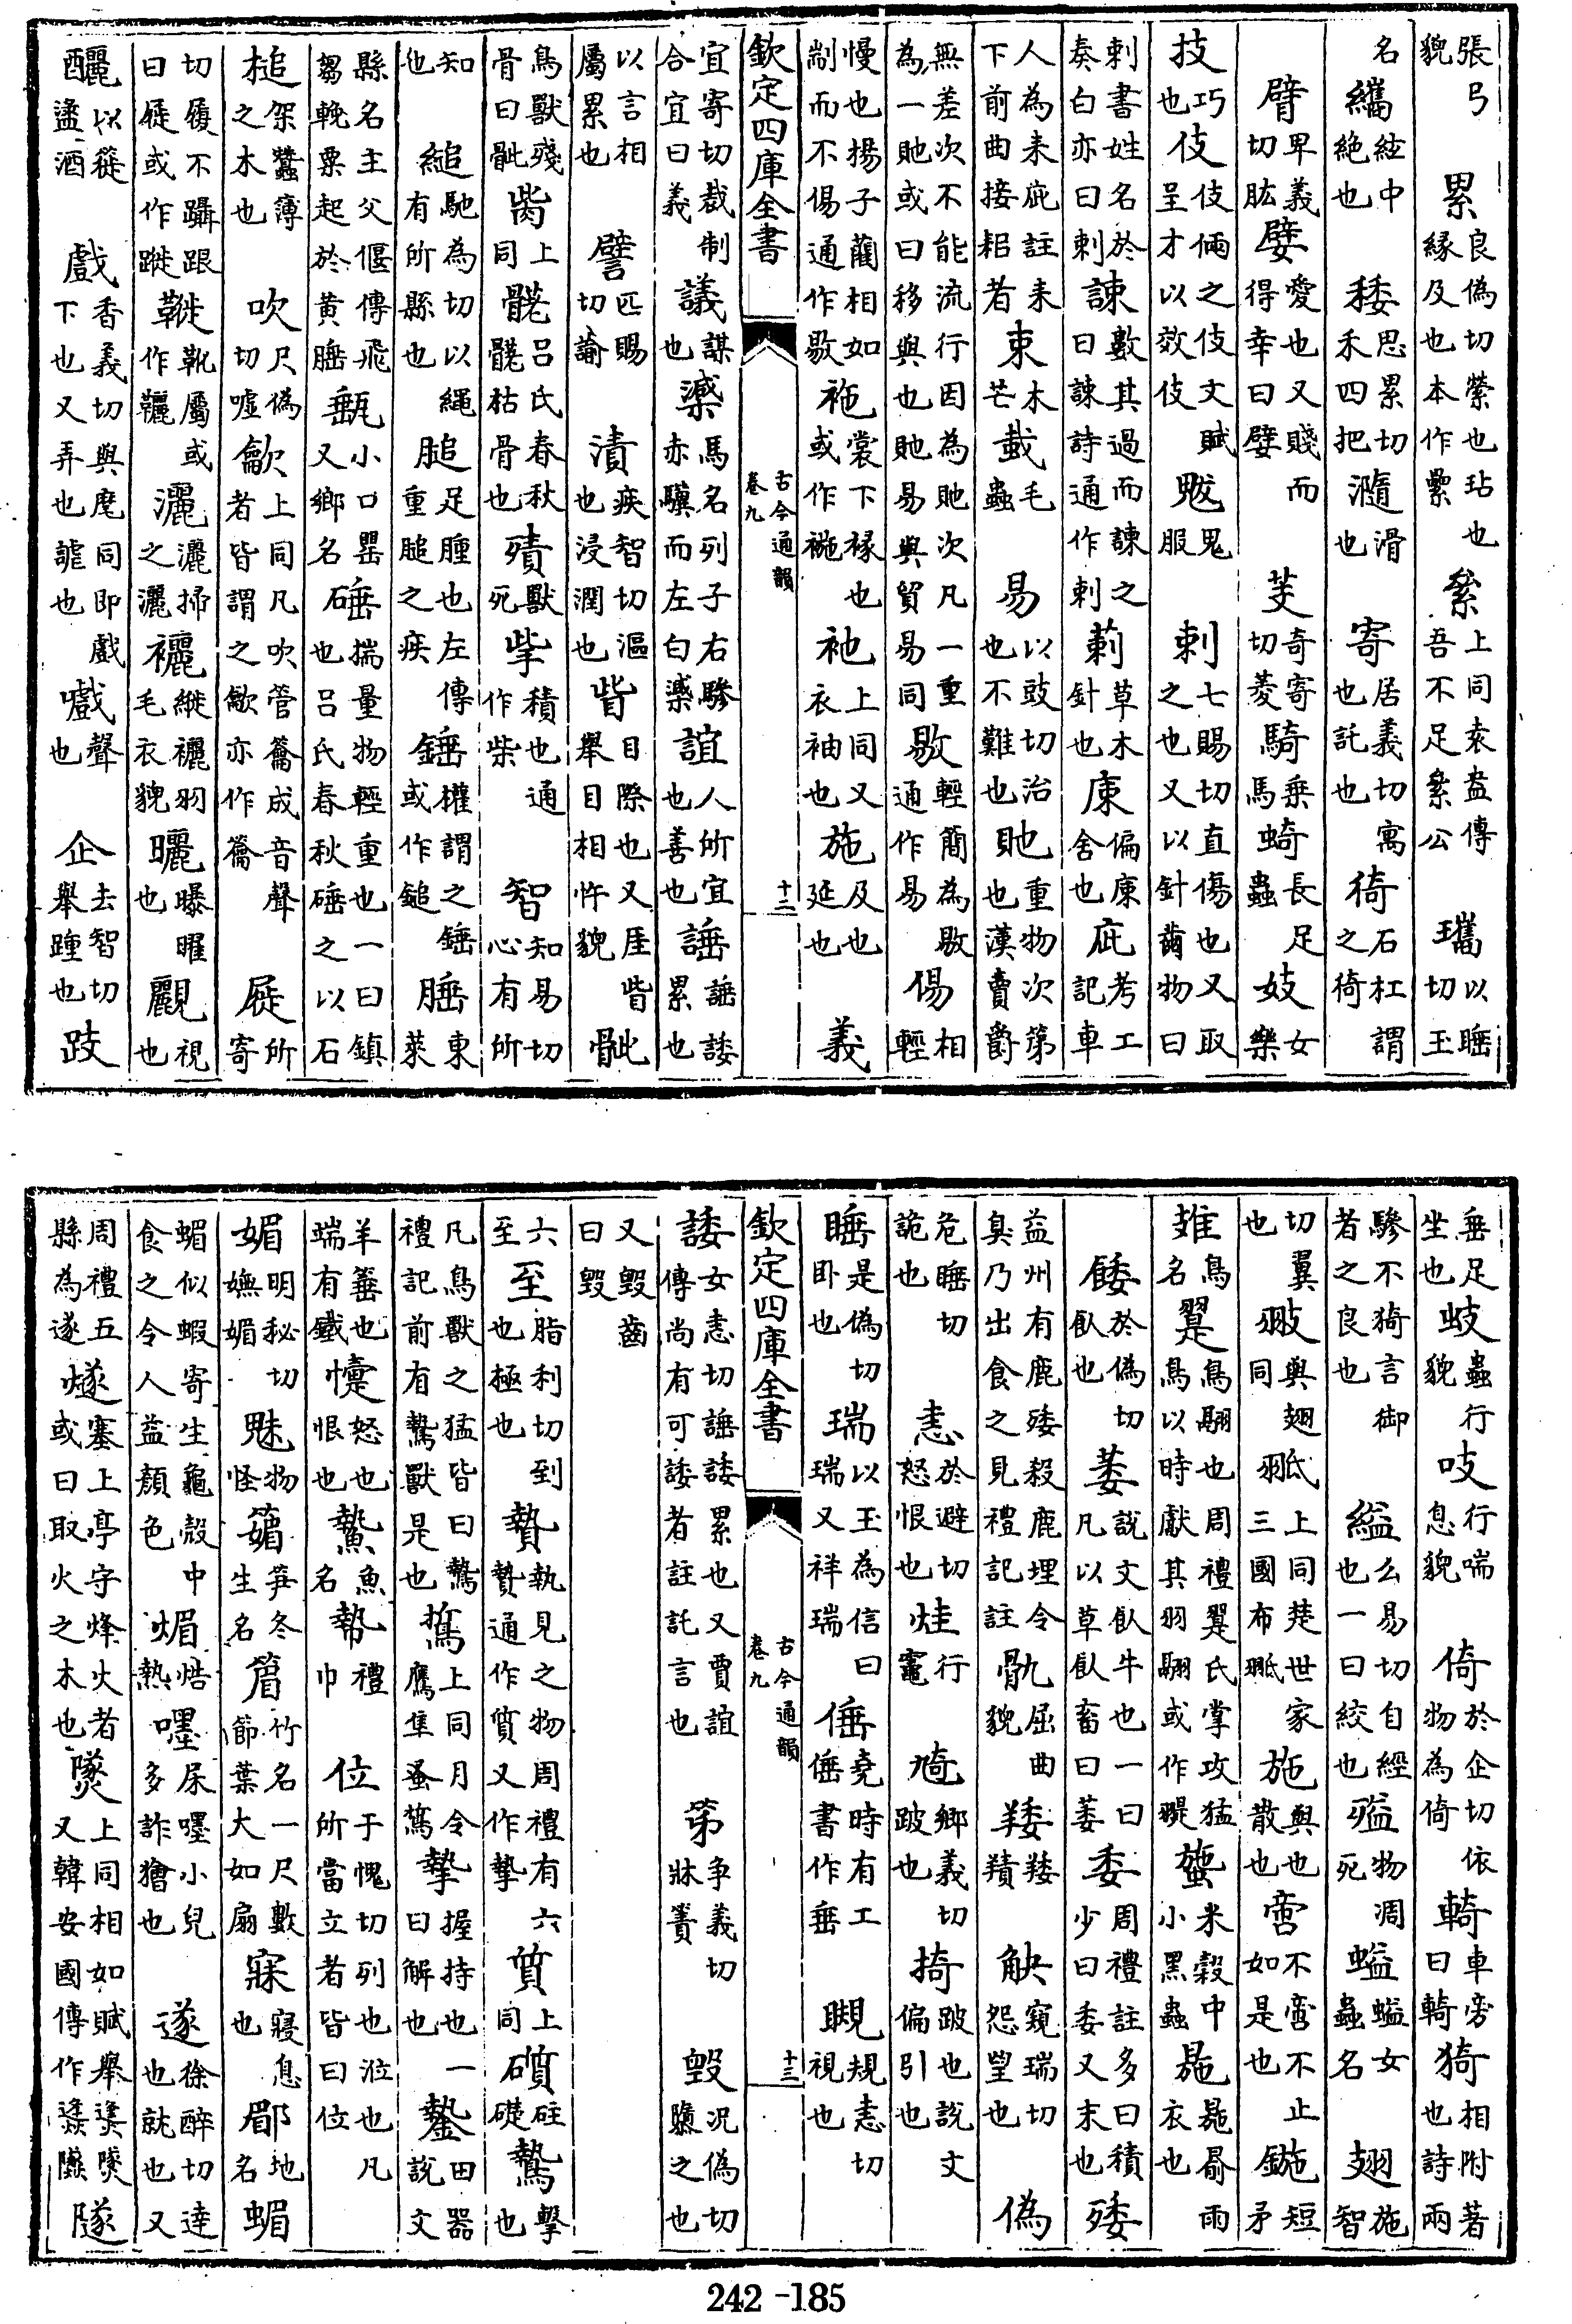 張弓貌　累良偽切縈也玷也緣及也本作纍絫上同袁盎傳吾不足絫公　瓗以睡切玉
名纗絃中絕也　㮃思累切禾四把瀡滑也　寄居義切寓也託也徛石杠謂之徛
臂卑義切肱嬖愛也又賤而得幸曰嬖　芰奇寄切菱騎乗馬䗁長足蟲妓女樂
技巧也伎伎倆之伎文賦呈才以效伎鬾鬼服　刺七賜切直傷也又取之也又以針黹物曰
刺書姓名於奏白亦曰刺諫數其過而諫之曰諫詩通作刺莿草木針也庲偏庲舍也庛考工記車
人為耒庛註耒下前曲接耜者朿木芒蛓毛蟲　易以豉切治也不難也貤重物次第也漢賣爵
無差次不能流行因為貤次凡一重為一貤或曰移與也貤易與貿易同敡輕簡為敡通作易傷相輕
慢也揚子藺相如剬而不傷通作敡袘裳下緣也或作䙾衪上同又衣袖也施及也延也　義
欽定四庫全書　古今通韻卷九　十二
宜寄切裁制合宜曰義議謀也㵝馬名列子右驂赤驥而左白㵝誼人所宜也善也諈諈諉累也
以言相屬累也　譬匹賜切諭　漬疾智切漚也浸潤也眥目際也又厓眥舉目相忤貌骴
鳥獸殘骨曰骴胔上同髊呂氏春秋髊枯骨也殨獸死㧘積也通作柴　智知易切心有所
知也　縋馳為切以繩有所縣也膇足腫也左傳重膇之疾　錘權謂之錘或作鎚腄東萊
縣名主父偃傳飛芻輓粟起於黃腄甀小口罌又鄉名硾揣量物輕重也一曰鎮也呂氏春秋硾之以石
槌架蠶薄之木也　吹尺偽切噓龡上同凡吹管籥成音聲者皆謂之龡亦作籥　屣所寄
切履不躡跟曰屣或作蹝鞾靴屬或作韆灑灑掃之灑襹縰襹羽毛衣貌曬曝暒也䚕視也
釃以簁盪酒　戲香義切與麾同即戲下也又弄也謔也嚱聲也　企去智切舉踵也跂
垂足坐也蚑蟲行貌吱行喘息貌　倚於企切依物為倚輢車旁曰輢猗相附著也詩兩
驂不猗言御者之良也　縊么易切自經也一曰絞也㱲物凋死螠螠女蟲名　翅施智
切翼也翄與翅同𦐊上同楚世家三國布𦐊施與也散也啻不啻不止如是也鍦短矛
䧴鳥名翨鳥翮也周禮翨氏掌攻猛鳥以時獻其羽翮或作翄䗐米穀中小黑蟲葹葹羸雨衣也
餧於偽切飤也　萎說文飤牛也一曰凡以草飤畜曰萎委周禮註多曰積少曰委又末也矮
益州有鹿矮殺鹿埋令臭乃出食之見禮記註骫屈曲貌矮羵觖窺瑞切怨望也　偽
危睡切詭也　恚於避切怒恨也烓行竈　䞿鄉義切跛也掎跛也說文偏引也
睡是偽切卧也　瑞以玉為信曰瑞又祥瑞倕堯時有工倕書作垂　瞡規恚切視也
欽定四庫全書　古今通韻卷九　十三
諉女恚切諈諉累也又賈誼傳尚有可諉者註託言也　笫爭義切牀簀　毀況偽切隳之也
又毀齒曰毀
六至脂利切到也極也　贄執見之物周禮有六贄通作質又作摯　質上同礩砫礎鷙擊也
凡鳥獸之猛皆曰鷙禮記前有鷙獸是也𩾲上同月令鷹隼蚤𩾲摯握持也一曰解也鏊田器說文
羊箠也端有鐵懥怒也恨也䲀魚名𢂻禮巾　位于愧切列也涖也凡所當立者皆曰位
媚明秘切嫵媚魅物怪䉋笋冬生名䈽竹名一尺數節葉大如扇寐寢息也郿地名蝞
蝞似蝦寄生龜殼中食之令人益顏色煝焅熱嚜㞙嚜小兒多詐獪也　遂徐醉切達也就也又
周禮五縣為遂㸂塞上亭守烽火者或曰取火之木也䥙上同相如賦舉烽又韓安國傳作隧